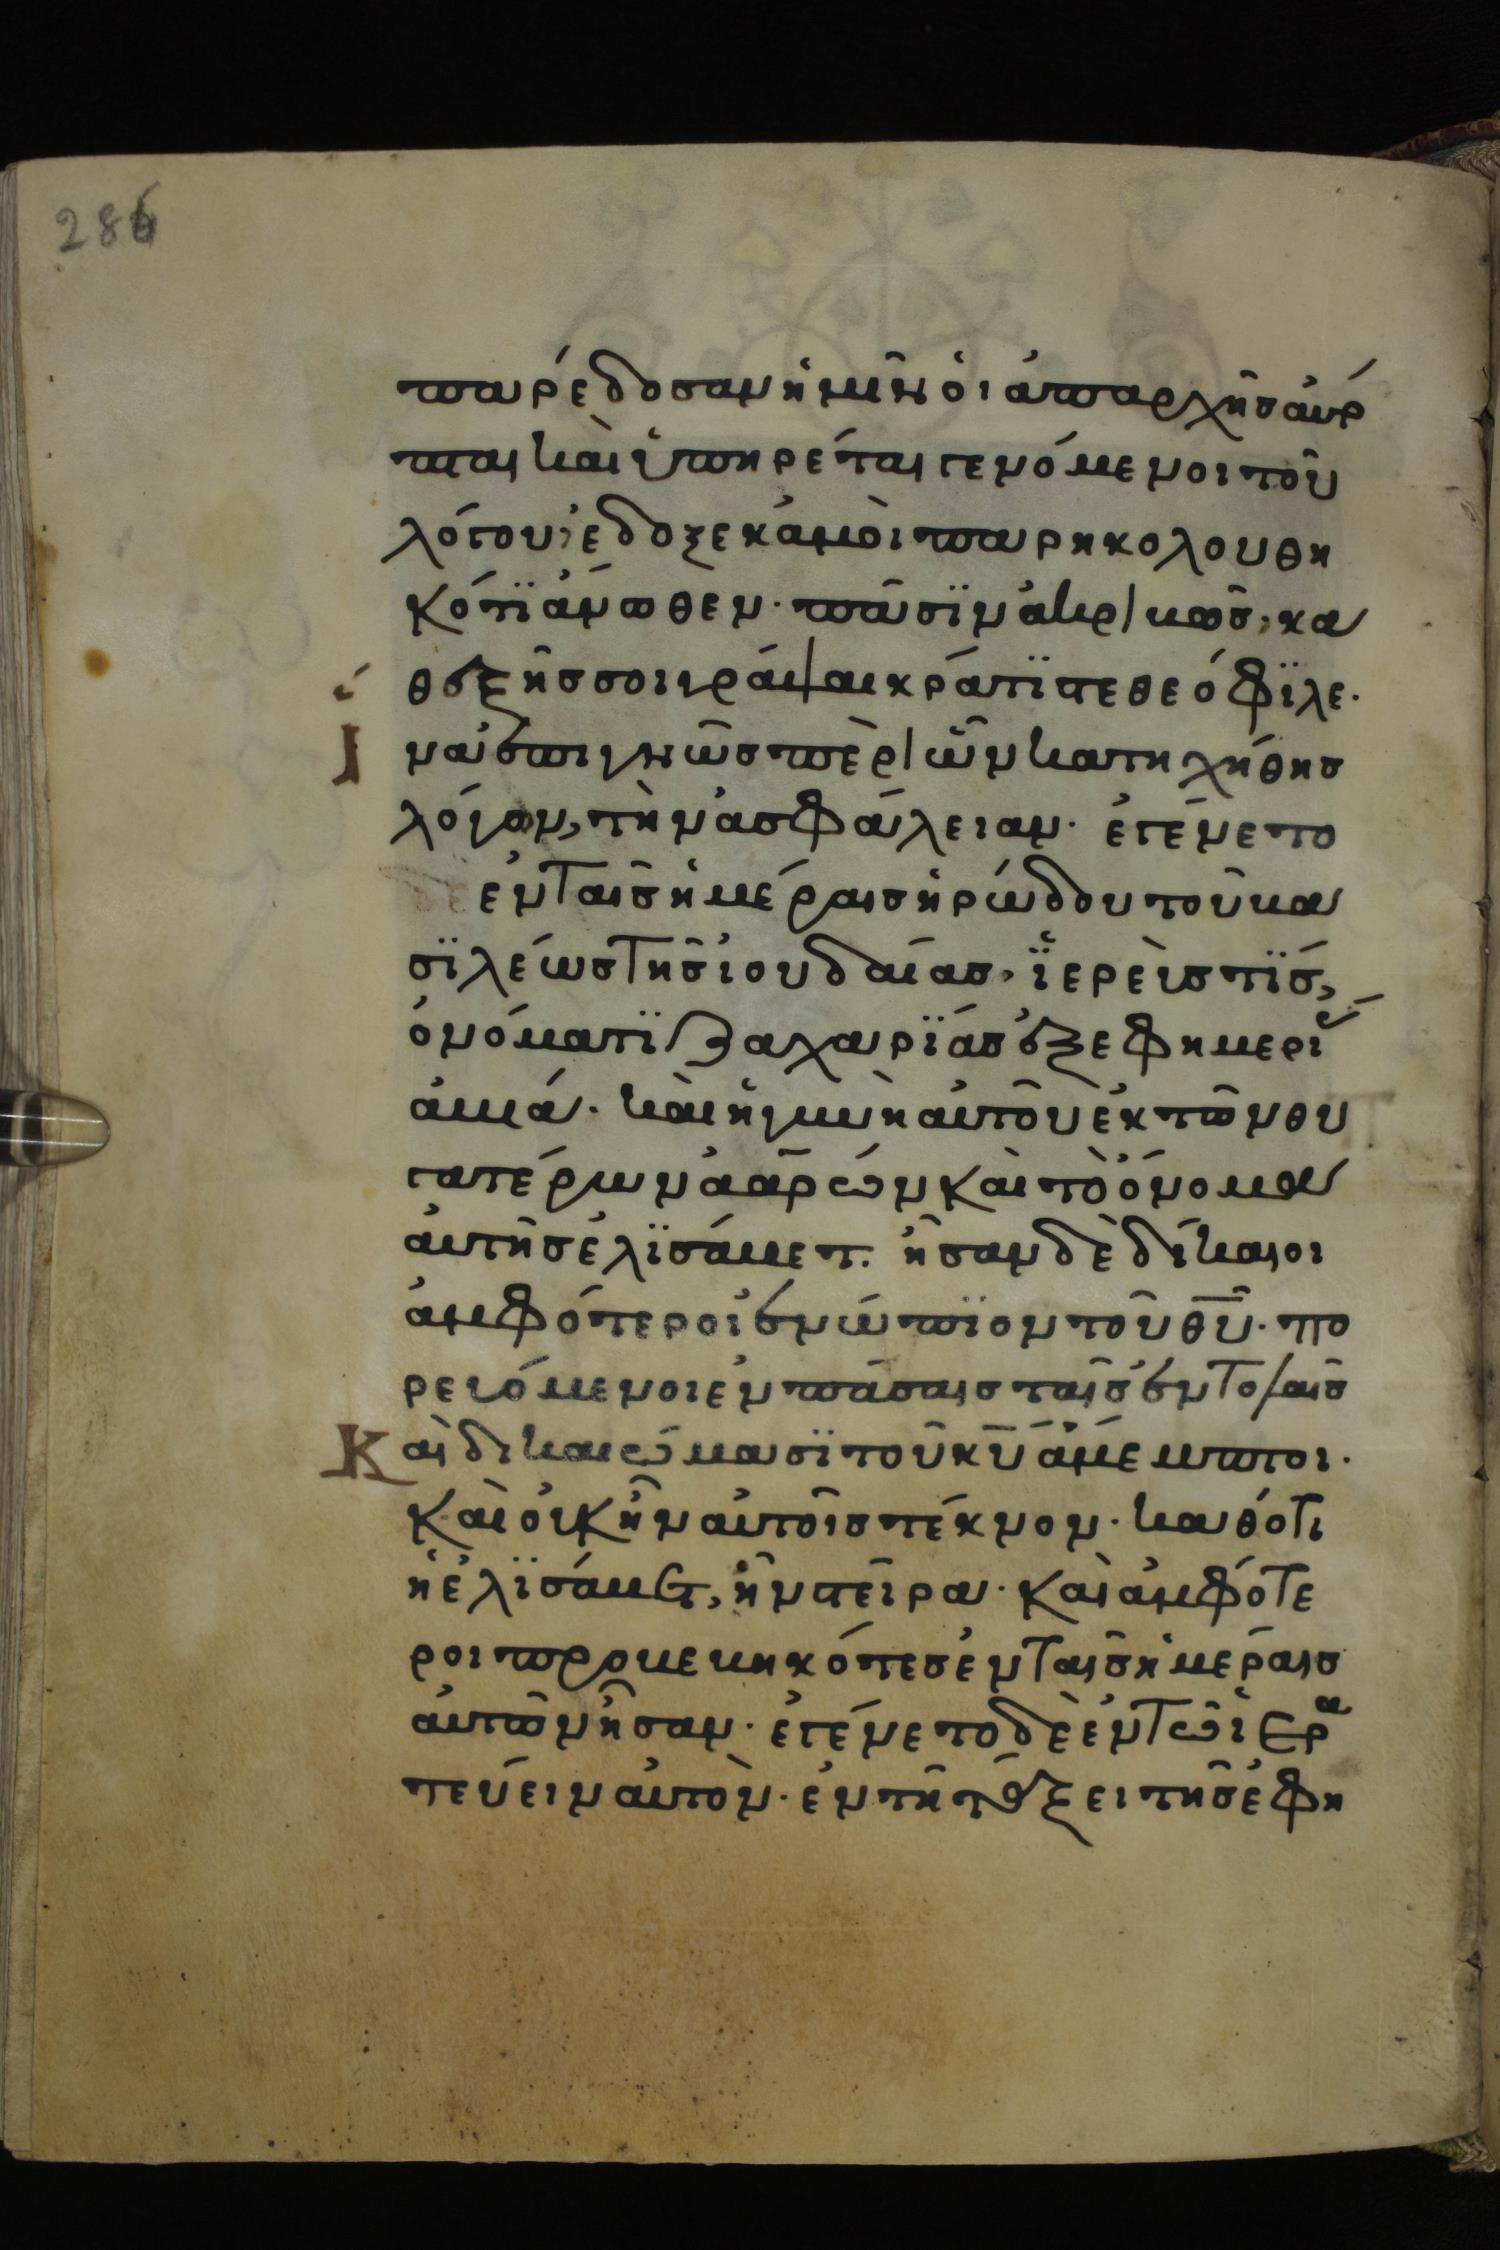 286
παρέδοσαν ἡμῖν οἱ ἀπαρχῆς ἀυτό
πται καὶ ὑπηρέται γενόμενοι τοῦ
λόγου, ἔδοξε κἀμοὶ παρηκολουθη
κότϊ ἄνωθεν· πᾶσϊν ἀκριβῶς, κα
θεξῆς σοι γράψαι κράτϊστε θεόφϊλε·
ἵνα ἐπιγνῶς περὶ ὧν κατηχήθης
λόγων, τὴν ἀσφάλειαν· ἐγένετο
ἐν ταῖς ἡμέραις ἡρώδου τοῦ βα
σϊλέως τῆς ἰουδαίας, ἵερεὺς τϊς,
ὀνόματϊ ζαχαρϊάς ἐξ εφημερί
ἀβιά· καὶ ἡ γυνὴ αὐτοῦ ἐκ τῶν θυ
γατέρων ἀαρών καὶ τὸ ὄνομα
ἀυτῆς ἐλϊσάβετ· ἦσαν δὲ δίκαιοι
ἀμφότεροι ἐνώπϊον τοῦ θῦ· πο
ρευόμενοι ἐν πάσαις ταῖς ἐντολαῖς
Καὶ δικαιώμασϊ τοῦ κῦ ἄμεμπτοι·
Καὶ οὐκ ἦν αὐτοῖς τέκνον· καθότι
ἡ ἐλϊσάβετ, ἦν στεῖρα· Καὶ ἀμφότε
ροι προβεβηκότες ἐν ταῖς ἡμέραις
ἀυτῶν ἦσαν· ἐγένετο δὲ ἐν τῶ ἱερα
τεύειν ἀυτὸν· ἐν τῆ τάξει τῆς ἐφη